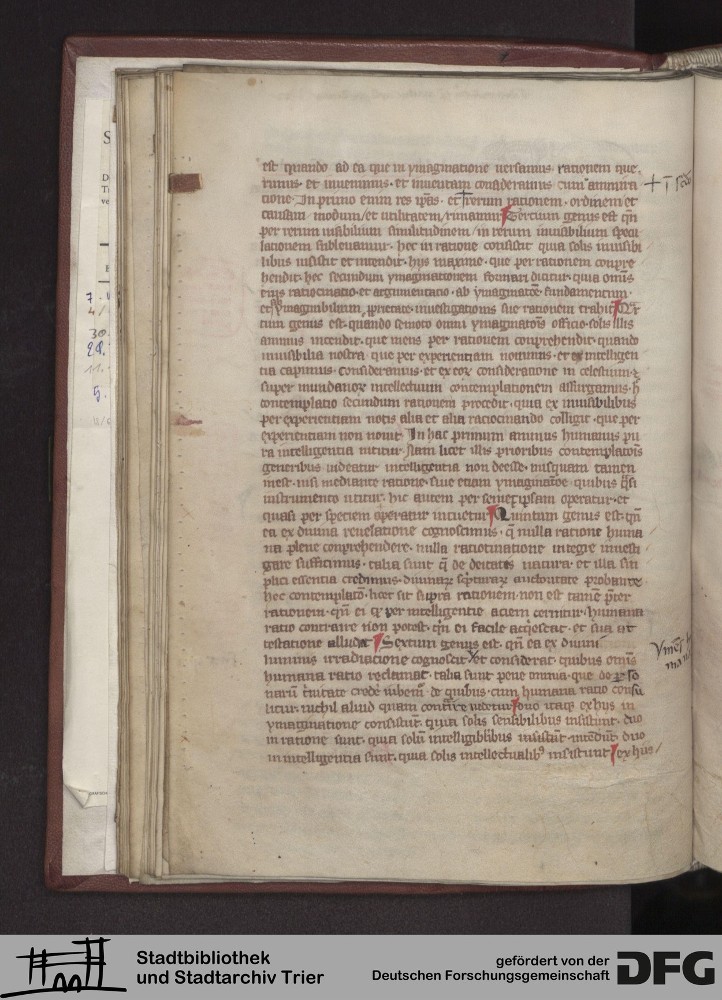 est quando ad ea que in ymaginatione versamus. rationem que
rimus. et invenimus. et inventam consideramus cum ammira
tione. In primo enim res ipsas. et rerum rationem. ordinem et
causam. modum / et utilitatem / rimamur Tercium genus est qn
per rerum visibilium similitudinem / in rerum invisibilium specu
lationem sublevamur. hec in ratione consistit quia solis invisibi
libus insistit et intendit. hys maxime. que per rationem compre
hendit. hec secundum ymaginationem formari dicitur. quia omis
eius ratiocinatio. et argumentatio. ab ymaginatoe. fundamentum.
et ab ymaginibilium pprietate. investigationis sue rationem trahit Qr
tum genus est. quando semoto omni ymaginatois officio. solis illis
animus intendit. que mens per rationem comprehendit. quando
invisibilia nostra. que per experientiam novimus. et ex intelligen
tia capimus. consideramus. et ex eor consideratione in celestium. et
super mundanor intellectuum contemplationem assurgamus. h
contemplatio secundum rationem procedit. quia ex invisibilibus
per experientiam notis alia et alia ratiocinando colligit. que per
experientiam non novit. In hac primum animus humanus pu
ra intelligentia nititur. Nam licet illis prioribus contemplatois
generibus videatur intelligentia non deesse. nusquam tamen
inest. nisi mediante ratione. sive etiam ymaginatoe. quibus qsi
instrumento utitur. hic autem per semetipsam operatur. et
quasi per speciem operatur intuetur Quintum genus est. qn
ea ex divina revelatione cognoscimus. q nulla ratione huma
na plene comprehendere. nulla ratiotinatione integre investi
gare sufficimus. talia sunt q de deitatis natura. et illa sim
plici essentia credimus. divinar scpturar auctoritate probante
hec contemplato. licet sit supra rationem. non est tame pter
rationem. qn ei q per intelligentie aciem cernitur. humana
ratio contraire non potest. qn ei facile acqescat. et sua at
testatione alludat Sextum genus est. qn ea ex divini
luminis irradiacione cognoscit et considerat. quibus omis
humana ratio reclamat. talia sunt pene omnia. que de pso
naru trinitate crede iubem. de quibus. cum humana ratio consu
litur. nichil aliud quam contire videtur Duo itaque ex hys in
ymaginatione consistut. quia solis sensibilibus insistunt. duo
in ratione sunt. quia solu intelligibilibus insistut. intedut. duo
in intelligentia sunt. quia solis intellectualib insistunt ex hys
Stadtbibliothek
und Stadtarchiv Trier
gefördert von der
Deutschen Forschungsgemeinschaft
DFG